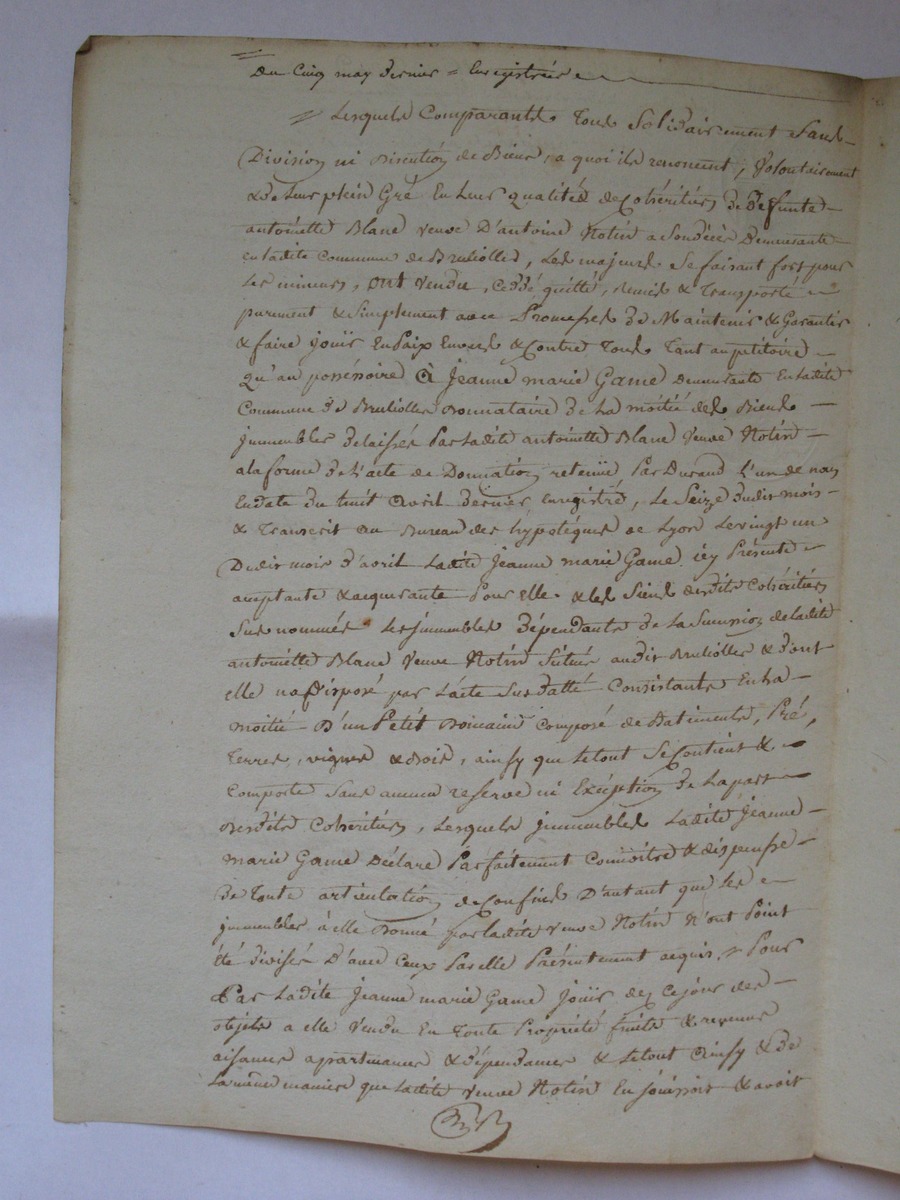 Du Cinq may dernier = Enregistrée
= Lesquels Comparants Tous Solidairement Sans
Division ni Discution de Biens, a quoi ils renoncent, Volontairement
& de Leur plein Gré En Leur qualités de Cohéritiers de Defunte
antoinette Blanc veuve D'antoine Notin a Son décès Demeurante
en ladite Commune de Brulioles, Les majeurs Se faisant fort pour
Les mineurs, ont vendu, Ceddé quitté, Remis & Transporté
purement & Simplement avec Promesses de Maintenir & Garantir
& faire jouir En Paix Envers & Contre Tous Tant au petitoire
Qu'au possessoire à Jeanne marie Game demeurante En ladite
Commune de Brulioles Donnataire de La moitié des Biens
jmmeubles delaissés Par Ladite antoinette Blanc veuve Notin
a la forme de L'acte de Donnation retenüe Par Durand L'un de nous
En date du huit avril dernier Enregistré, Le Seize dudit mois
& Transcrit au Bureau des hÿpotéques de Lyon Le vingt un
Dudit mois d'avril Ladite Jeanne marie Game icy Présente
acceptante & acquerante Pour elle & les Siens desdits Cohéritiers
Sus nommés Les jmmeubles Dépendants de La Succession de ladite
antoinette Blanc veuve Notin Situés audit Brulioles & dont
elle n'a disposé par L'acte Sus datté Consistants En La
moitié D'un Petit Domaine Composé de Batiments, Pré,
Terres, vignes & Bois, ainsy que le tout Se Contient &
Comporte Sans aucune reserve ni Exception de La part
desdits Cohéritiers, Lesquels jmmeubles Ladite Jeanne
marie Game Déclare Parfaitement Connoitre & dispense
de Toute articulation de Confins D'autant que Les
jmmeubles à elle Donné par ladite veuve Notin N'ont Point
été divisés D'avec Ceux Par elle Présentement acquis = Pour
Par Ladite Jeanne marie Game Jouir dez Ce jour des
objets a elle vendu En Toute Propriété fruits & revenus
aisances apartenances & dépendances & le tout Ainsy & de
La même maniere que Ladite veuve Notin En jouissoit & avoit